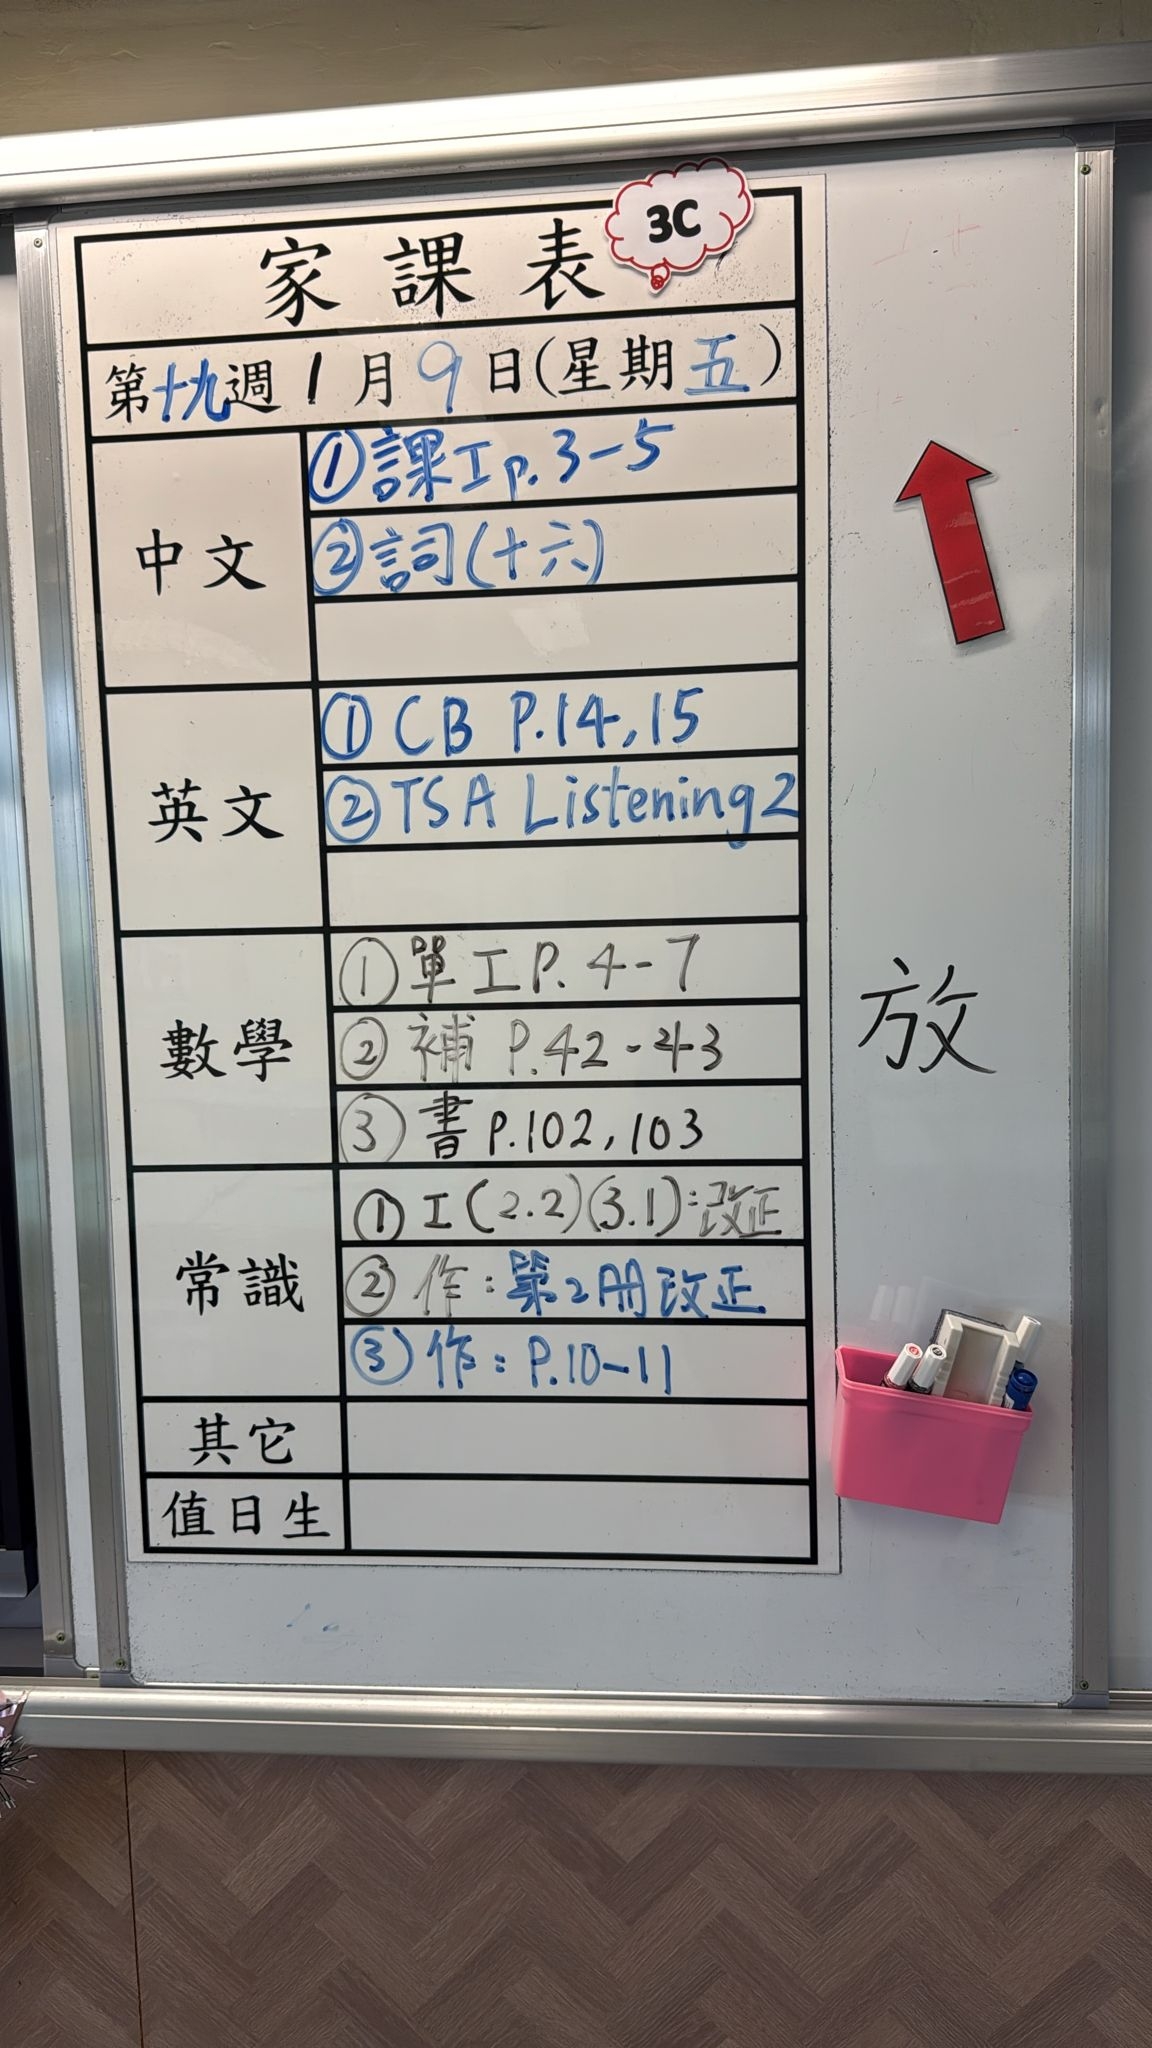 家課表
3C
第十九週1月9日(星期五)
中文
①課工p.3-5
②詞(十六)
英文
①CB P.14,15
②TSA Listening2
數學
①單工P.4-7
②補 P.42-43
③書P.102,103
常識
①工(2.2)(3.1):改正
②作:第2冊改正
③作:P.10-11
其它
值日生
放